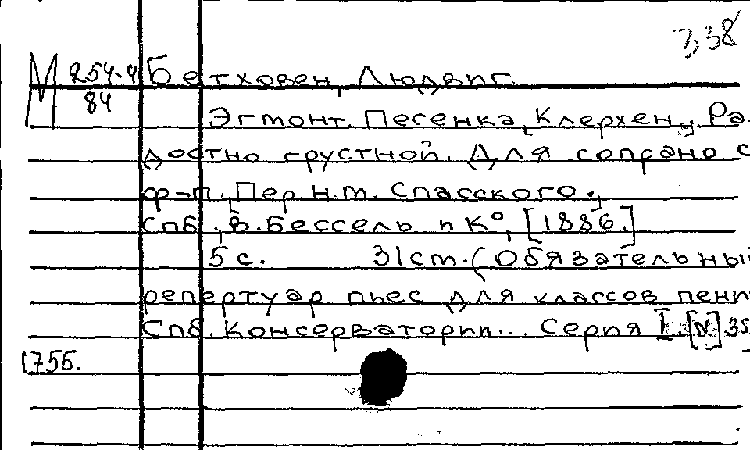 338
М 254-4 Бетховен, Людвиг.
84
Эгмонт. Песенка Клерхен, Ра-
достно грустной. Для сопрано с
ф-п. Пер. Н.М. Спасского.
Спб., В. Бессель и К°, [1886.]
5 с. 31 cm. (Обязательный
репертуар пьес для классов пени
Спб. Консерватории... Серия I. [N] 35
1755.